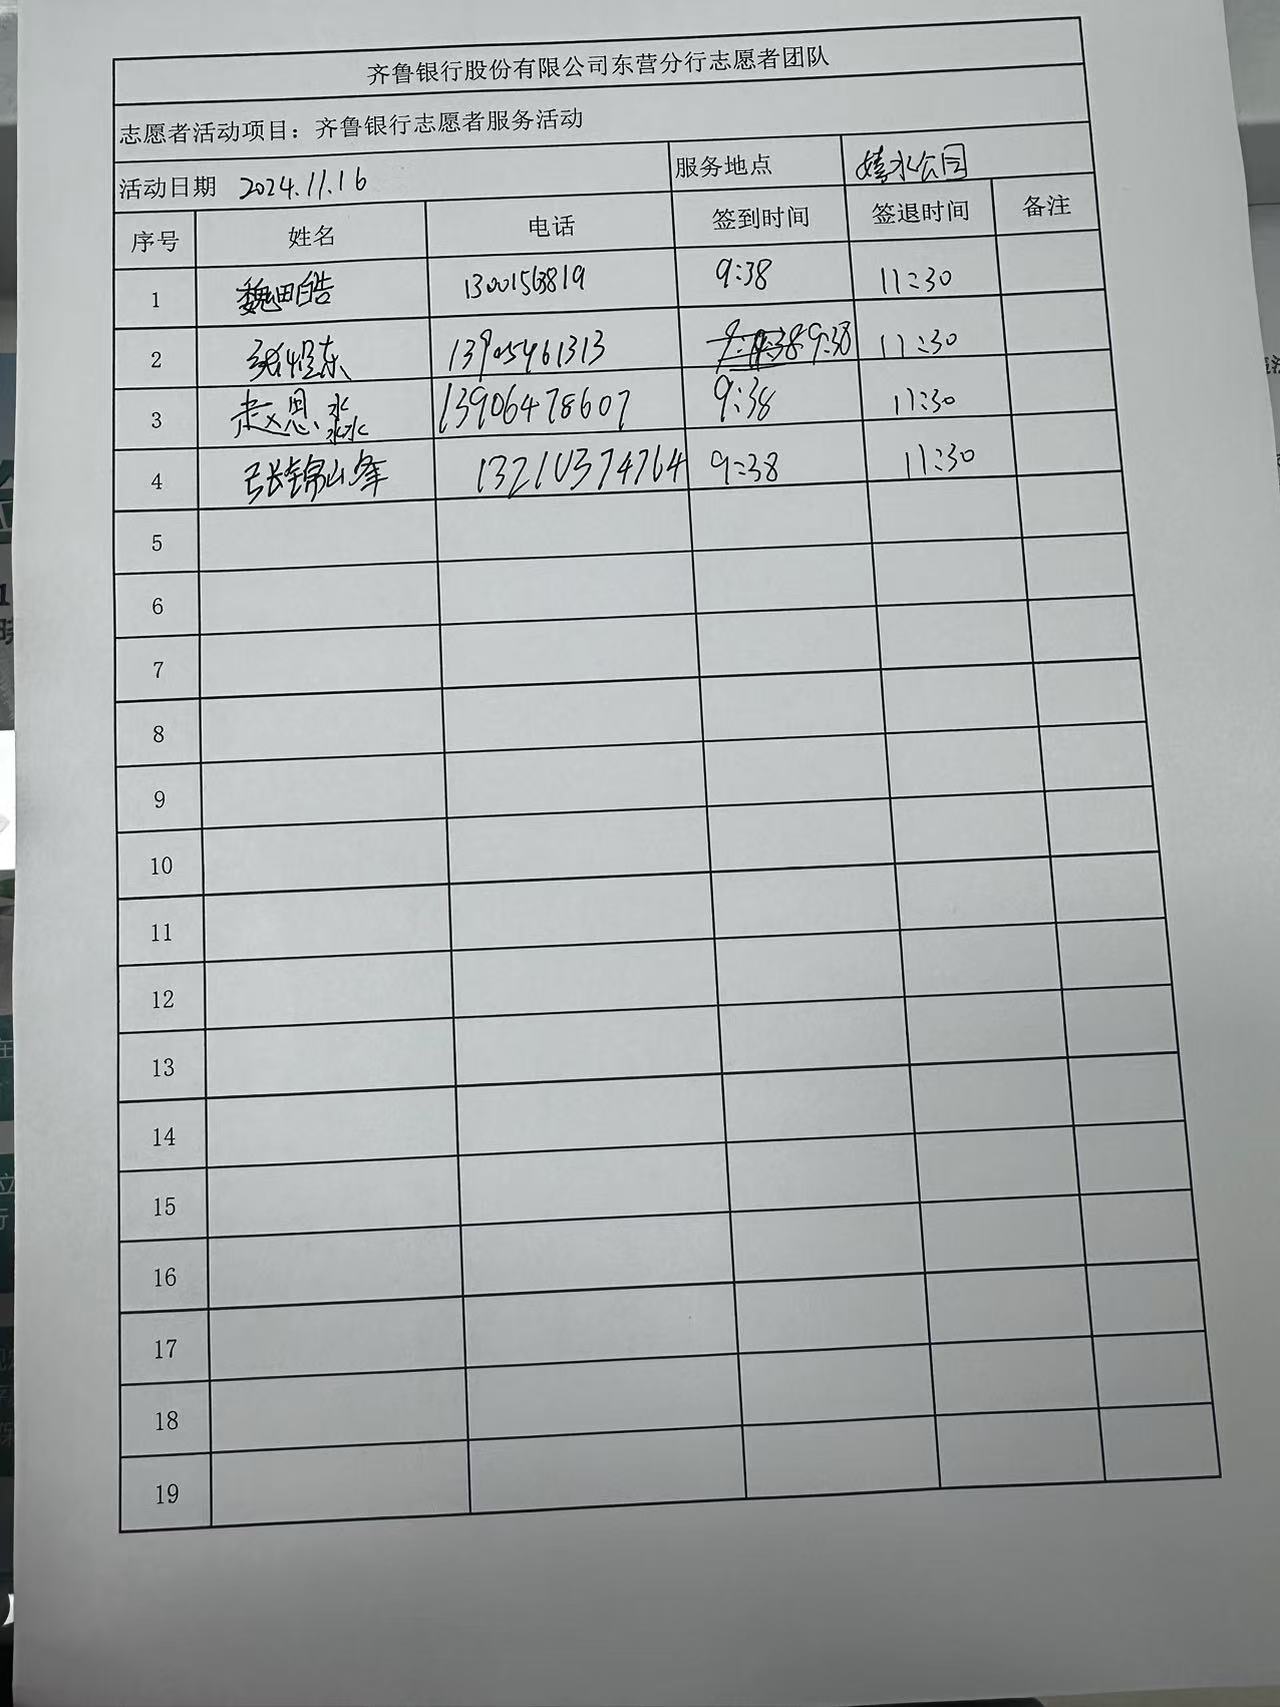 齐鲁银行股份有限公司东营分行志愿者团队
志愿者活动项目：齐鲁银行志愿者服务活动
活动日期 2024.11.16 服务地点 嬉水公园
序号 姓名 电话 签到时间 签退时间 备注
1 魏田皓 13001563819 9:38 11:30
2 东 13905461313 9:38 11:30
3 赵恩淼 13906478607 9:38 11:30
4 张锦峰 13210374764 9:38 11:30
5
6
7
8
9
10
11
12
13
14
15
16
17
18
19